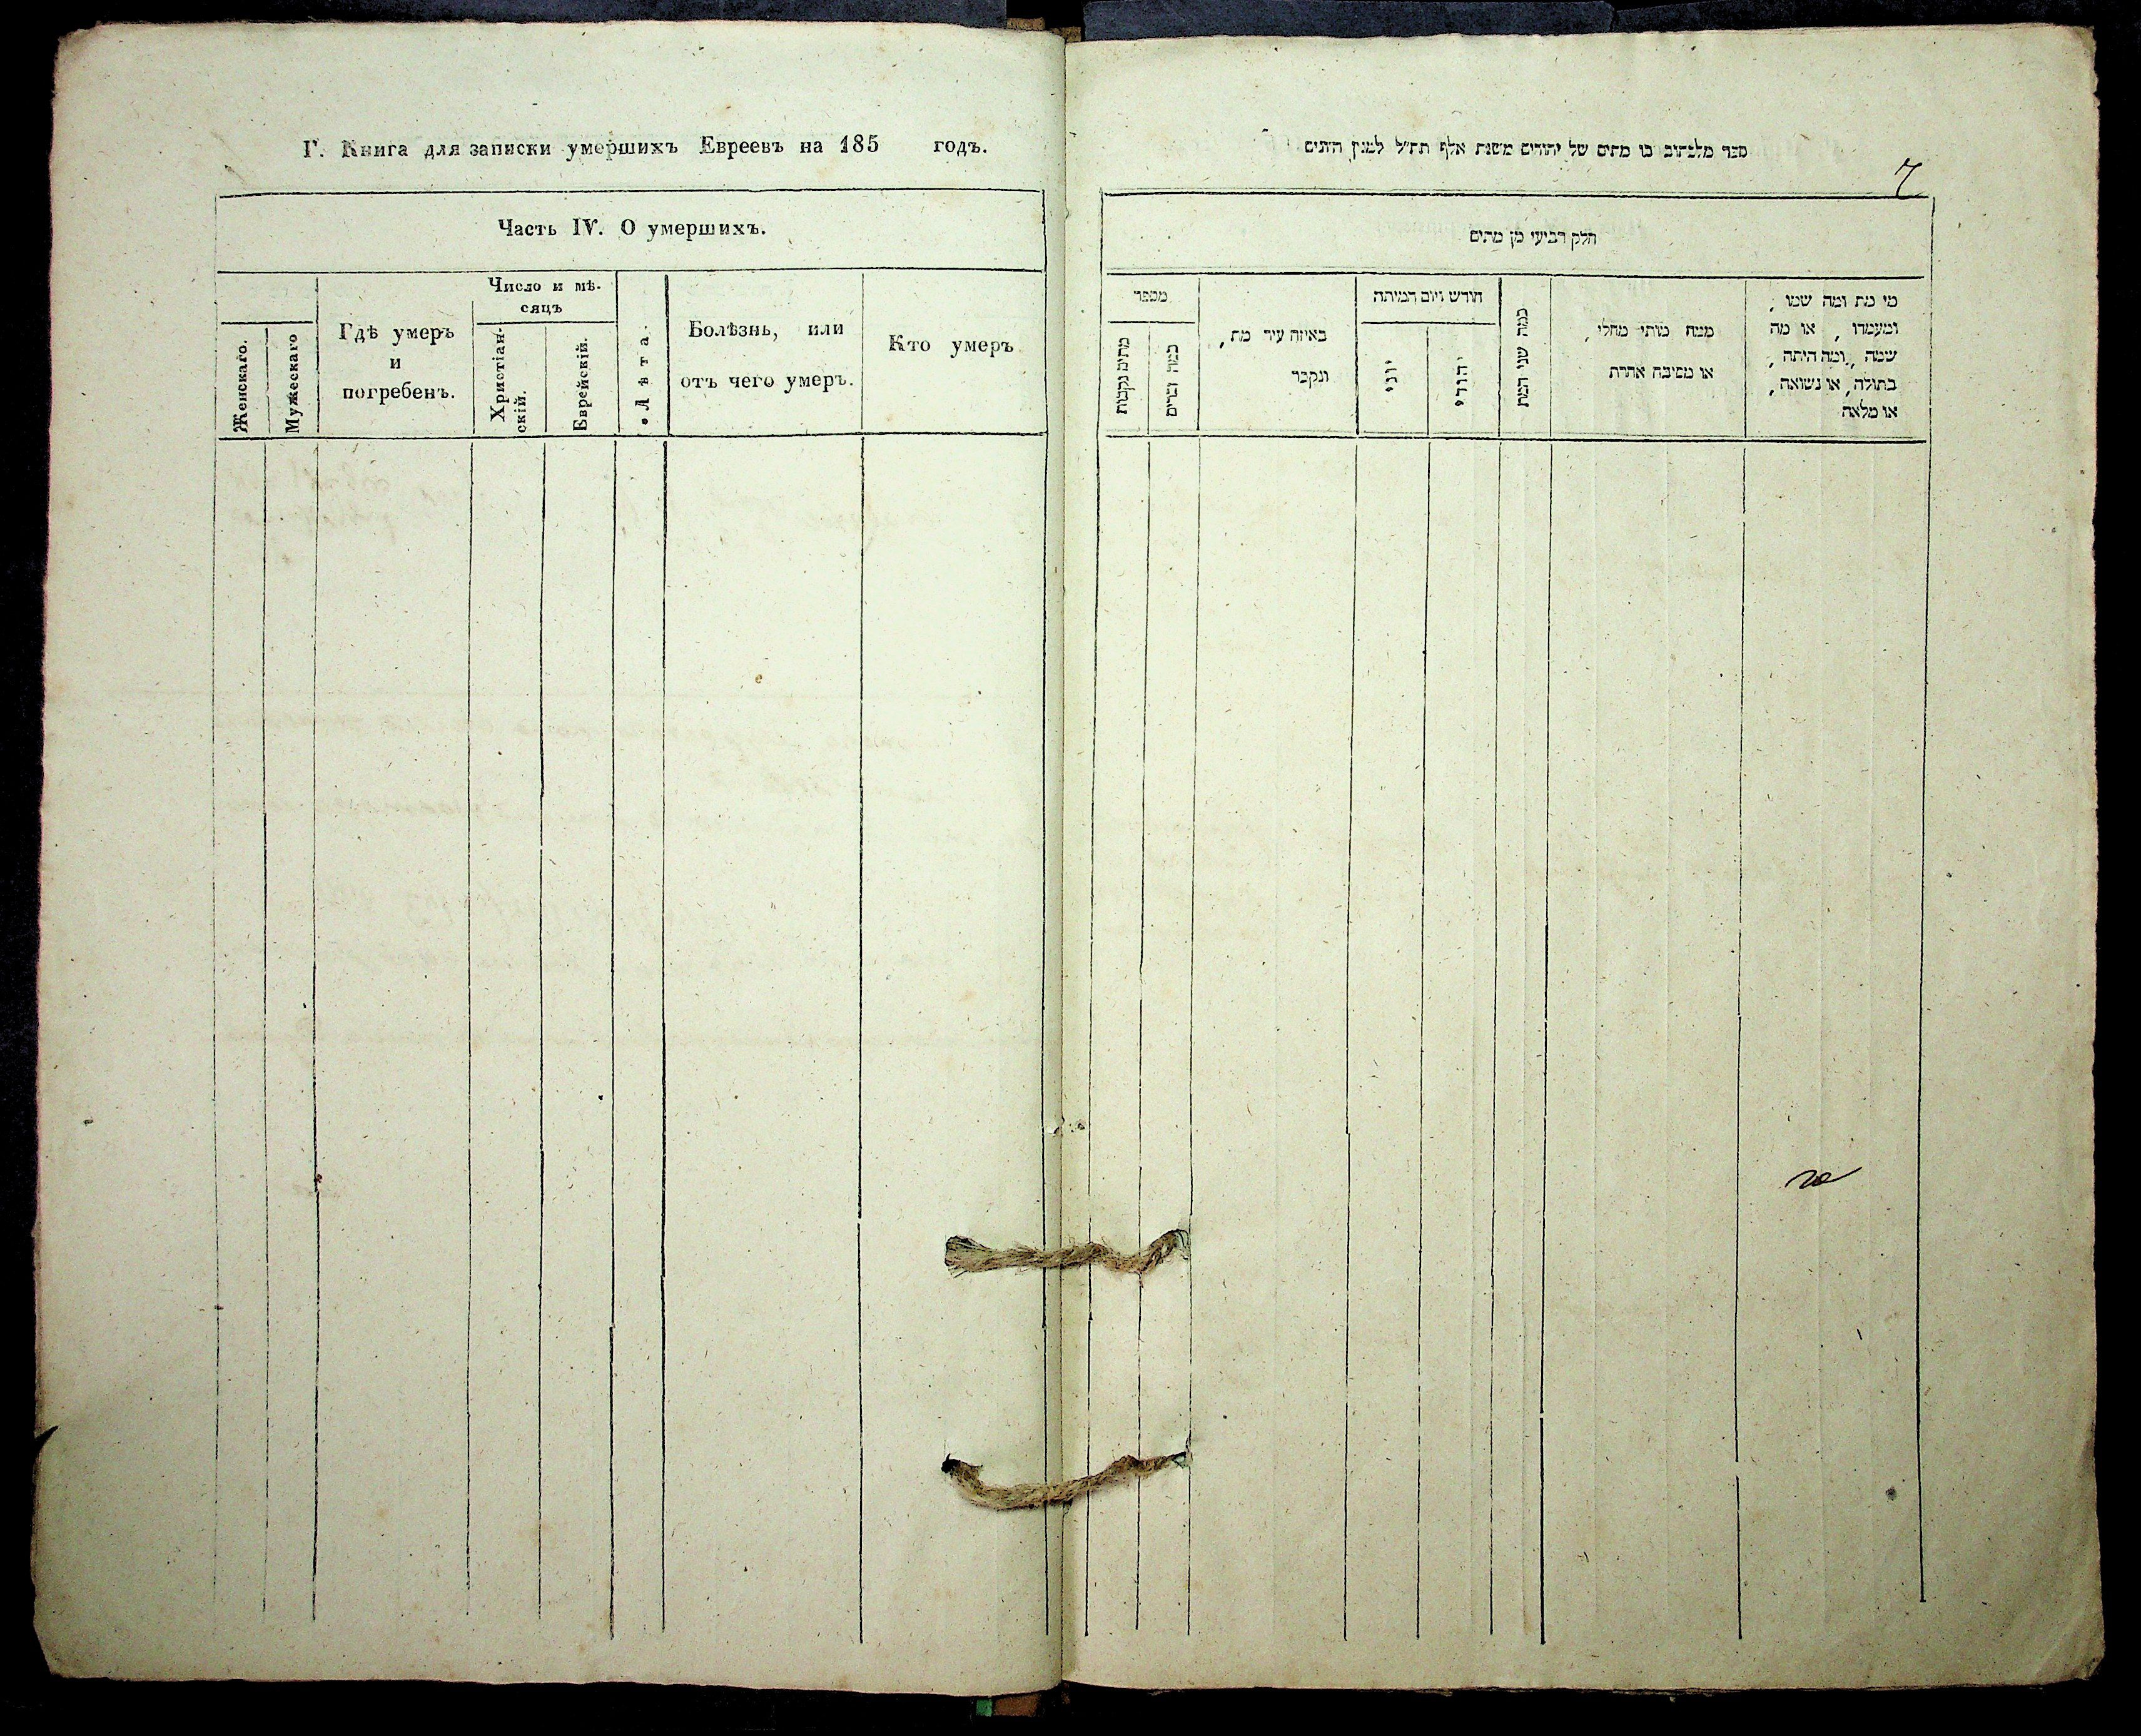 Г. Книга для записки умершихъ Евреевъ на 185 годъ.
Часть IV. О умершихъ.
Женскаго.
Мужескаго
Гдѣ умеръ
и
погребенъ.
Число и мѣ-
сяцъ
Христіан-
скій.
Еврейскій.
Лѣта.
Болѣзнь, или
отъ чего умеръ.
Кто умеръ
ספר מלכתוב בו מתים של יהודים משנת אלף תת״ל למנין היונים
7
חלק רביעי מן מתים
מספר
מתים נקבות
כמה זכרים
באיזה עיר מת,
ונקבר
חודש ויום המיתה
יוני
יהודי
כמה שני המת
ממה מותי מחלי,
או מסיבה אחרת
מי מת ומה שמו,
ומעמדו, או מה
שמה, ומה היתה,
בתולה, או נשואה,
או מלאה